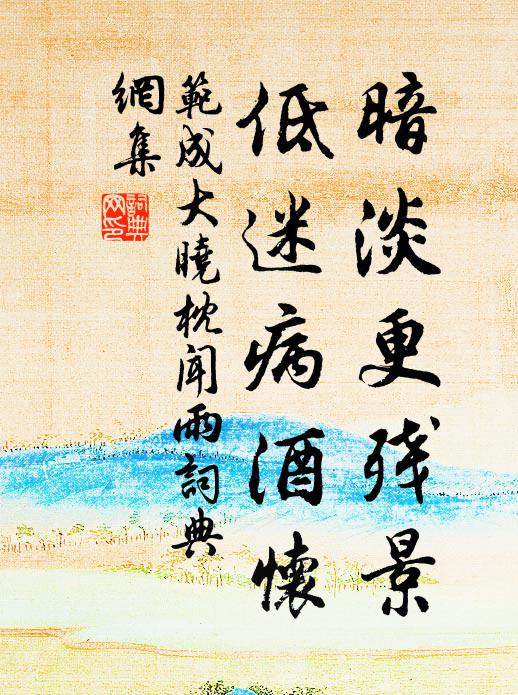 暗淡更残景
低迷病酒懷
範成大曉枕闻雨詞典
網集
詞典
网印